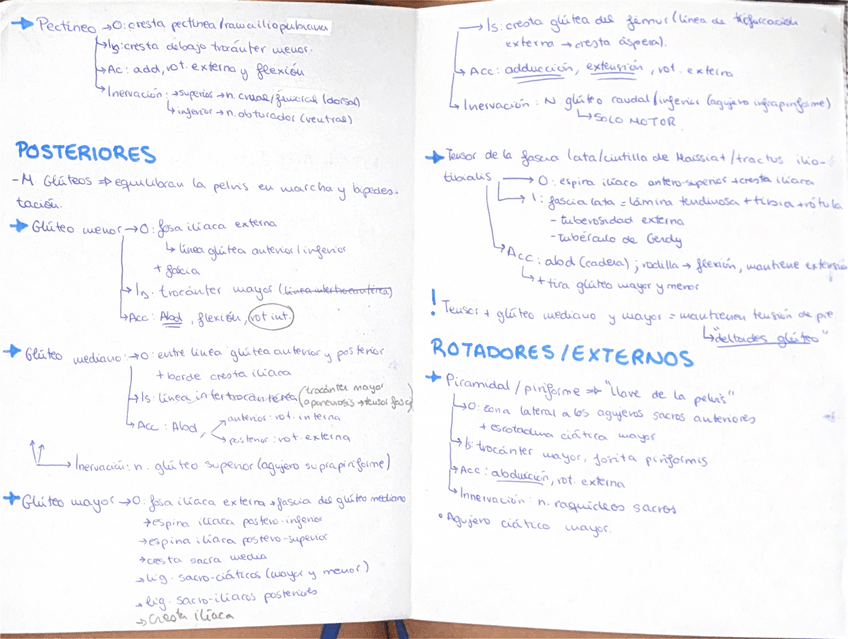 → Pectíneo → O: cresta pectínea/rama iliopubiana
→ Is: cresta debajo trocánter menor.
→ Ac: add, rot. externa y flexión
→ Inervación: → superior → n. crural/femoral (dorsal)
→ inferior → n. obturador (ventral)
POSTERIORES
- M. Glúteos ⇒ equilibran la pelvis en marcha y bipedes-
tación.
→ Glúteo menor → O: fosa ilíaca externa
↳ línea glútea anterior/inferior
+ fascia
→ Is. trocánter mayor (línea intertrocantérea)
→ Acc: Abd, flexión, rot int.
→ Glúteo mediano: → O: entre línea glútea anterior y posterior
+ borde cresta ilíaca
→ Is: línea intertrocantérea (trocánter mayor
aponeurosis → tensor fascia)
→ Acc: Abd anterior: rot. interna
posterior: rot. externa
→ Inervación: n. glúteo superior (agujero suprapiriforme)
→ Glúteo mayor → O: fosa ilíaca externa + fascia del glúteo mediano
→ espina ilíaca postero-inferior
→ espina ilíaca postero-superior
→ cresta sacra media
→ lig. sacro-ciáticos (mayor y menor)
→ lig. sacro-ilíacos posteriores
→ cresta ilíaca
→ Is: cresta glútea del fémur (línea de trifurcación
externa → cresta áspera).
→ Acc: adducción, extensión, rot. externa
→ Inervación: N glúteo caudal/inferior (agujero infrapiriforme)
↳ SOLO MOTOR
→ Tensor de la fascia lata/cintilla de Maissiat/tractus ilio-
tibialis → O: espina ilíaca antero-superior + cresta ilíaca
→ I: fascia lata = lámina tendinosa + tibia + rótula
- tuberosidad externa
- tubérculo de Gerdy
→ Acc: abd (cadera); rodilla → flexión, mantiene extensión
↳ + tira glúteo mayor y menor
! Tensor + glúteo mediano y mayor = mantienen tensión de pie
↳ "deltoides glúteo"
ROTADORES/EXTERNOS
→ Piramidal/piriforme ⇒ "llave de la pelvis"
→ O: zona lateral a los agujeros sacros anteriores
+ escotadura ciática mayor
→ Is: trocánter mayor, fosita piriformis
→ Acc: abducción, rot. externa
→ Innervación: n. raquídeos sacros
• Agujero ciático mayor.